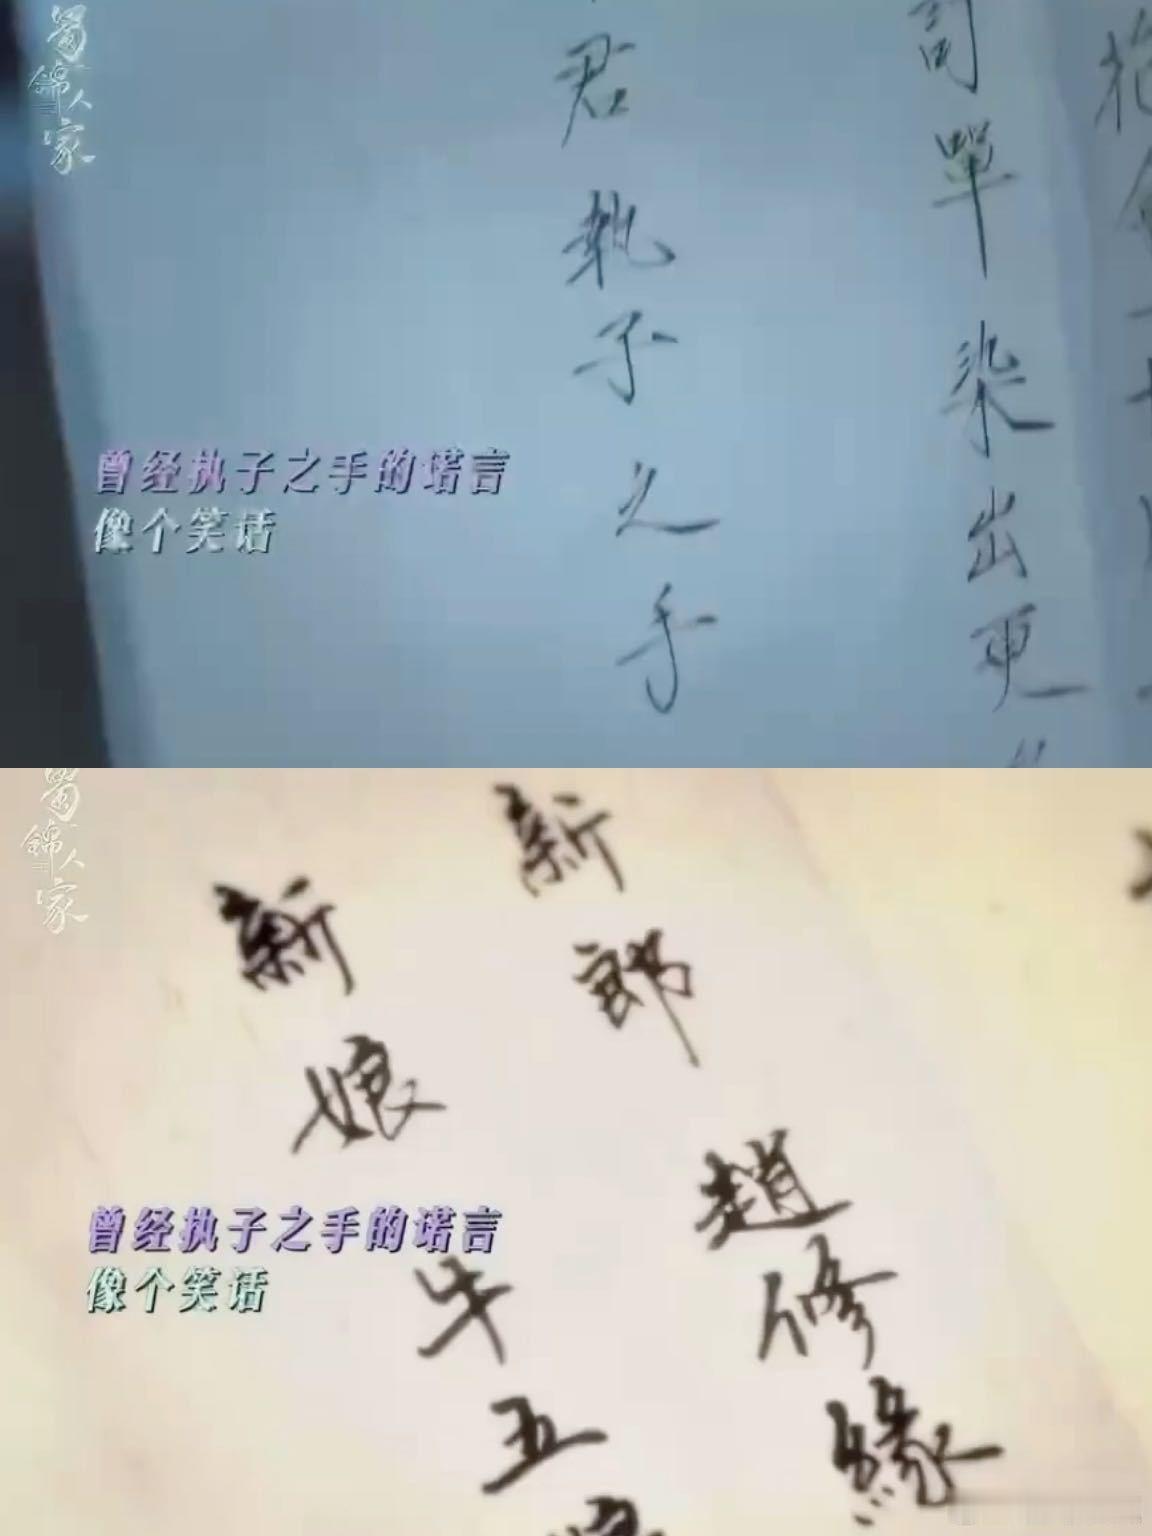 蜀锦人家
司單染出更
君執子之手
曾经执子之手的诺言
像个笑话
蜀锦人家
新郎 趙修緣
新娘 牛五
曾经执子之手的诺言
像个笑话